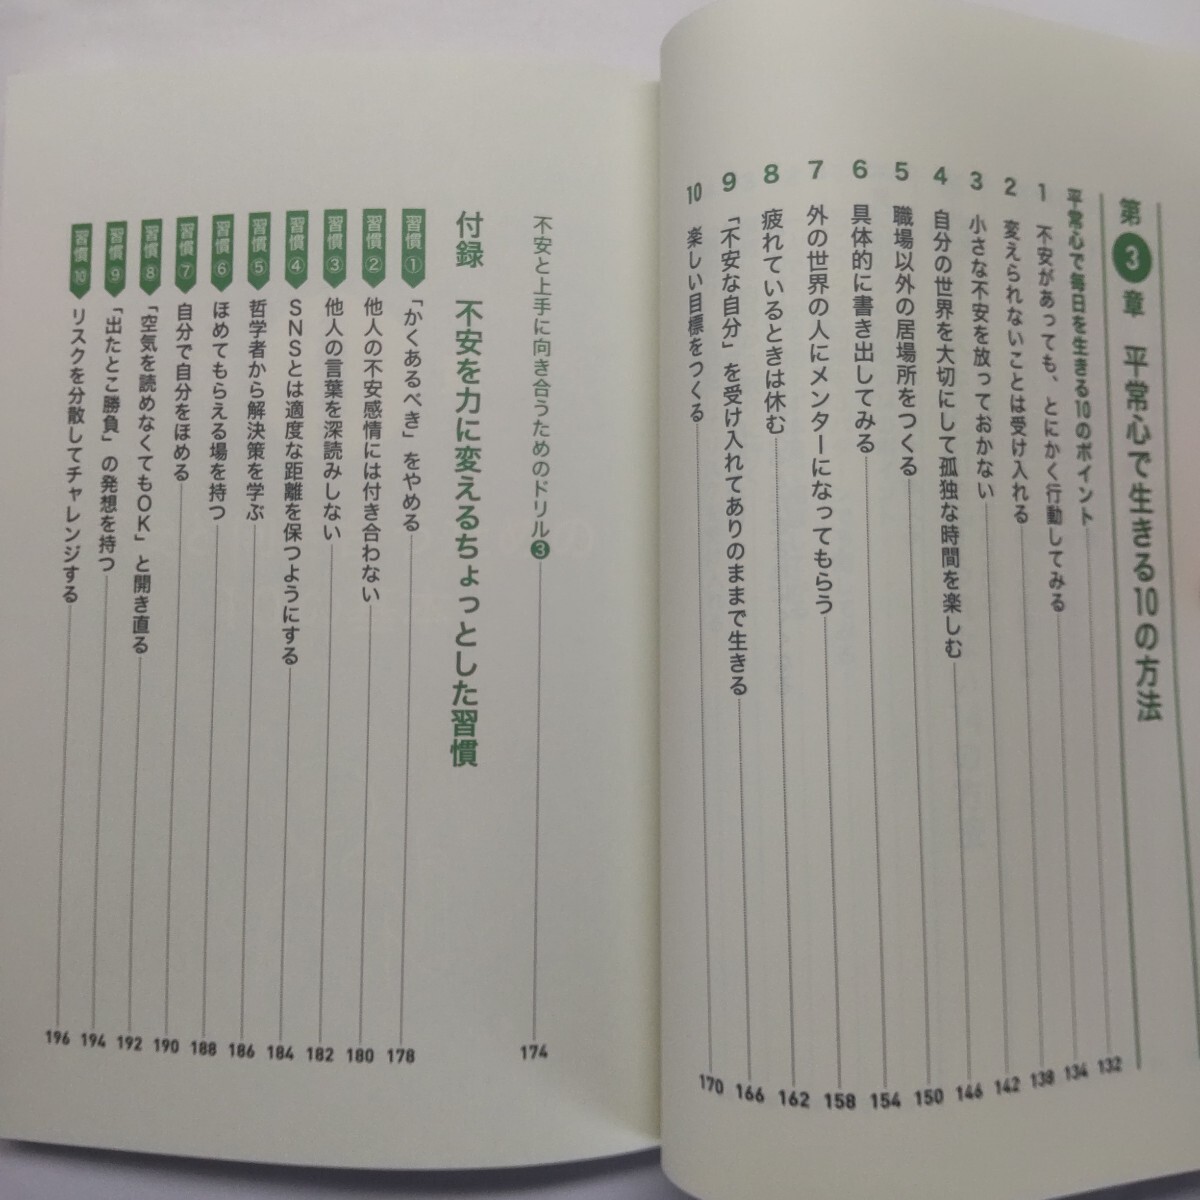 第3章 平常心で生きる10の方法
平常心で毎日を生きる10のポイント 132
1 不安があっても、とにかく行動してみる 134
2 変えられないことは受け入れる 138
3 小さな不安を放っておかない 142
4 自分の世界を大切にして孤独な時間を楽しむ 146
5 職場以外の居場所をつくる 150
6 具体的に書き出してみる 154
7 外の世界の人にメンターになってもらう 158
8 疲れているときは休む 162
9 「不安な自分」を受け入れてありのままで生きる 166
10 楽しい目標をつくる 170
不安と上手に向き合うためのドリル❸ 174
付録 不安を力に変えるちょっとした習慣
習慣① 「かくあるべき」をやめる 178
習慣② 他人の不安感情には付き合わない 180
習慣③ 他人の言葉を深読みしない 182
習慣④ SNSとは適度な距離を保つようにする 184
習慣⑤ 哲学者から解決策を学ぶ 186
習慣⑥ ほめてもらえる場を持つ 188
習慣⑦ 自分で自分をほめる 190
習慣⑧ 「空気を読めなくてもOK」と開き直る 192
習慣⑨ 「出たとこ勝負」の発想を持つ 194
習慣⑩ リスクを分散してチャレンジする 196